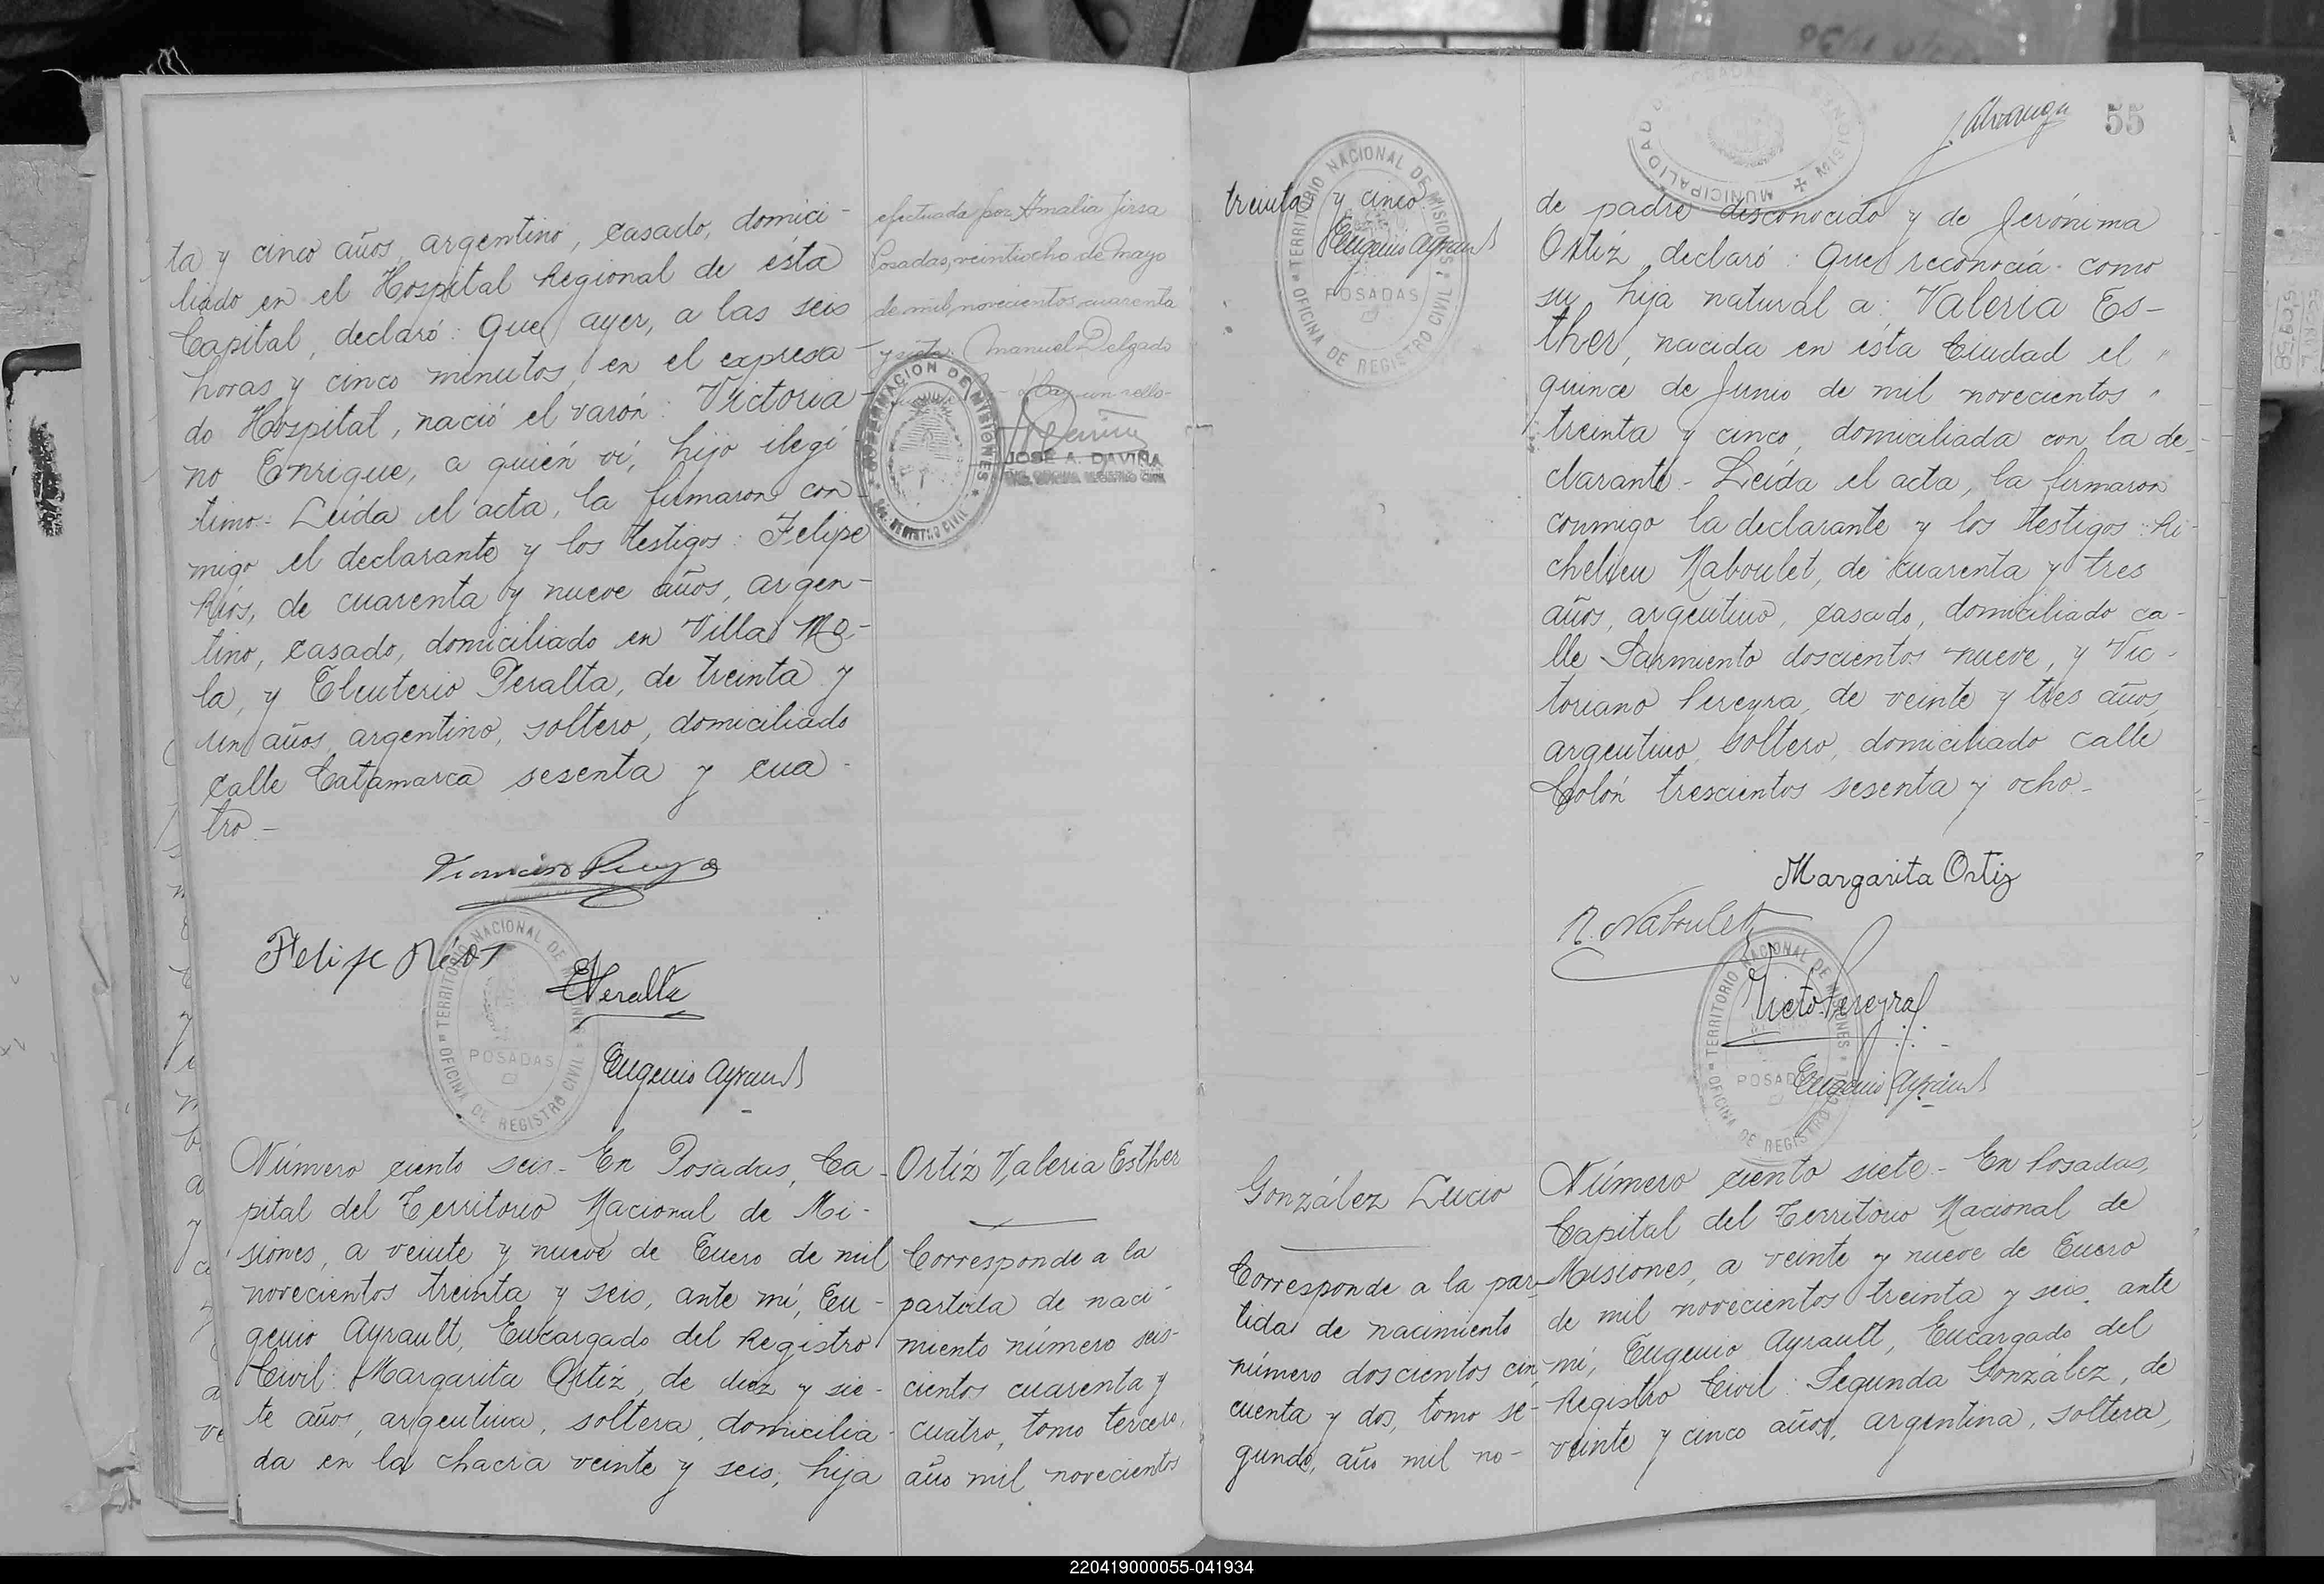 ta y cinco años, argentino, casado, domici-
liado en el Hospital Regional de ésta
Capital, declaró: Que ayer, a las seis
horas y cinco minutos, en el expresa-
do Hospital, nació el varón: Victoria-
no Enrique, a quién ví, hijo ilegí-
timo.- Leída el acta, la firmaron con-
migo el declarante y los testigos: Felipe
Ríos, de cuarenta y nueve años, argen-
tino, casado, domiciliado en Villa Mo-
la, y Eleuterio Peralta, de treinta y
un años, argentino, soltero, domiciliado
calle Catamarca sesenta y cua-
tro.-
Felipe Ríos
EPeralta
TERRITORIO NACIONAL DE MISIONES
POSADAS
OFICINA DE REGISTRO CIVIL
Eugenio Ayrault
efectuada por Amalia Jirsa
Posadas, veintiocho de mayo
de mil novecientos cuarenta
y siete. Manuel Delgado
Hay un sello-
GOBERNACION DE MISIONES
REGISTRO CIVIL
JOSÉ A. DAVIÑA
Número ciento seis.- En Posadas, Ca-
pital del Territorio Nacional de Mi-
siones, a veinte y nueve de Enero de mil
novecientos treinta y seis, ante mí, Eu-
genio Ayrault, Encargado del Registro
Civil: Margarita Ortíz, de diez y sie-
te años, argentina, soltera, domicilia-
da en la chacra veinte y seis, hija
Ortíz Valeria Esther
Corresponde a la
partida de naci-
miento número seis-
cientos cuarenta y
cuatro, tomo tercero,
año mil novecientos
treinta y cinco
Eugenio Ayrault
TERRITORIO NACIONAL DE MISIONES
POSADAS
OFICINA DE REGISTRO CIVIL
MUNICIPALIDAD
55
de padre desconocido y de Jerónima
Ortíz, declaró: Que reconocía como
su hija natural a: Valeria Es-
ther, nacida en ésta Ciudad el "
quince de Junio de mil novecientos "
treinta y cinco, domiciliada con la de-
clarante.- Leída el acta, la firmaron
conmigo la declarante y los testigos: Ri-
chelieu Naboulet, de cuarenta y tres
años, argentino, casado, domiciliado ca-
lle Sarmiento doscientos nueve, y Vic-
toriano Pereyra, de veinte y tres años,
argentino, soltero, domiciliado calle
Colón trescientos sesenta y ocho.-
Margarita Ortiz
R. Naboulet
Victo Pereyra
TERRITORIO NACIONAL DE MISIONES
POSADAS
OFICINA DE REGISTRO CIVIL
Eugenio Ayrault
González Lucio
Corresponde a la par-
tida de nacimiento
número doscientos cin-
cuenta y dos, tomo se-
gundo, año mil no-
Número ciento siete.- En Posadas,
Capital del Territorio Nacional de
Misiones, a veinte y nueve de Enero
de mil novecientos treinta y seis, ante
mí, Eugenio Ayrault, Encargado del
Registro Civil: Segunda González, de
veinte y cinco años, argentina, soltera,
220419000055-041934